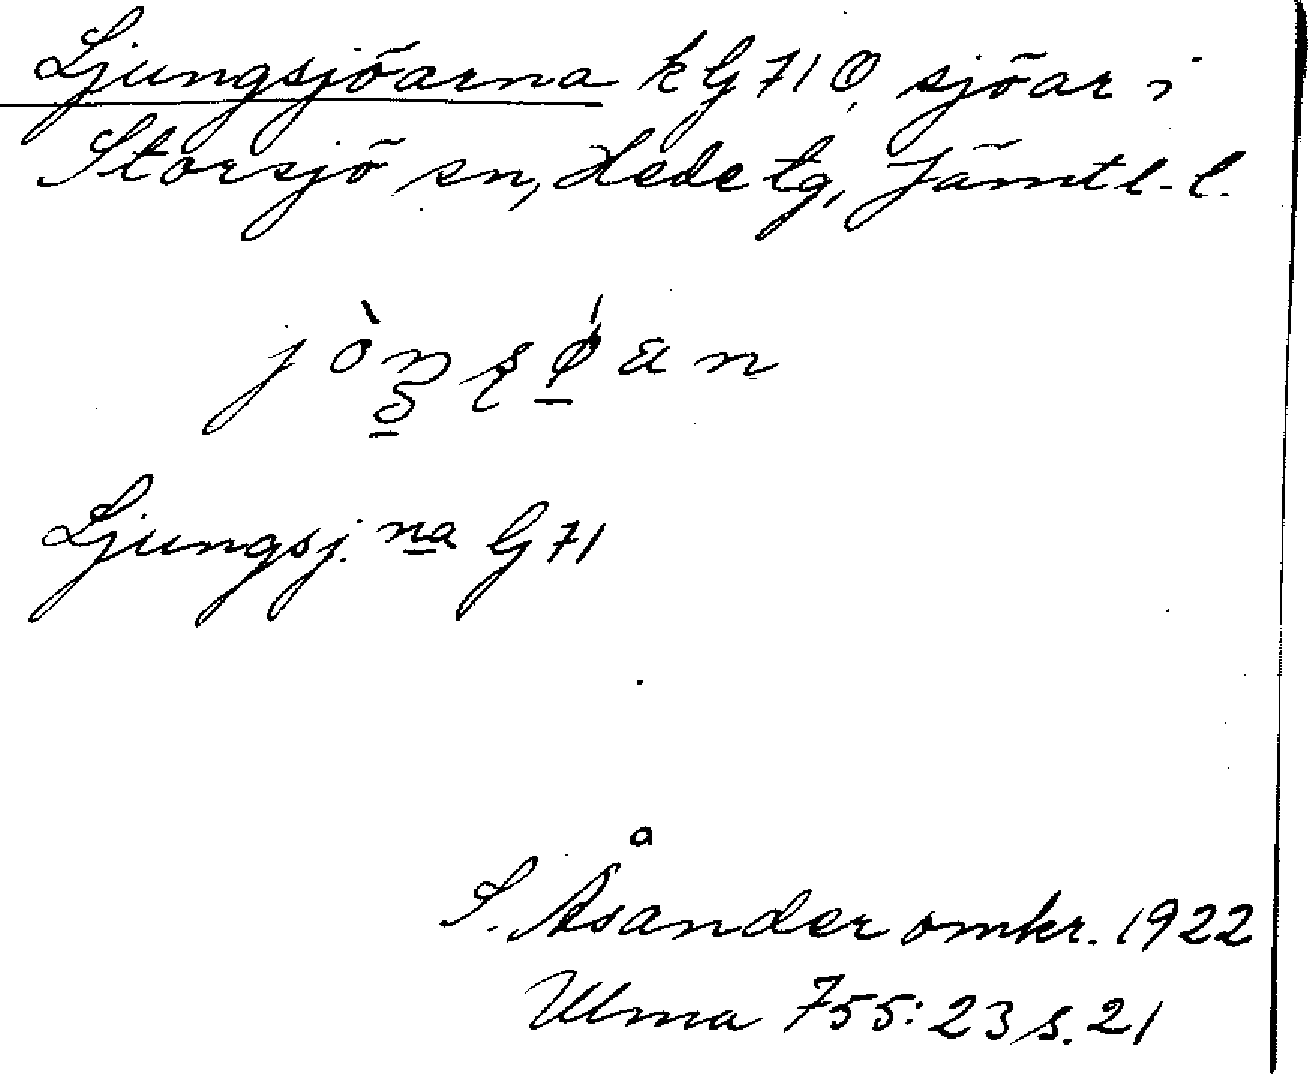 Ljungsjöarna kG 71 Ö, sjöar i
Storsjö sn, Hede tg, Jämtl. l.
Ljungsj. na G 71
S. Åsander omkr. 1922
Ulma 755:23 s. 21